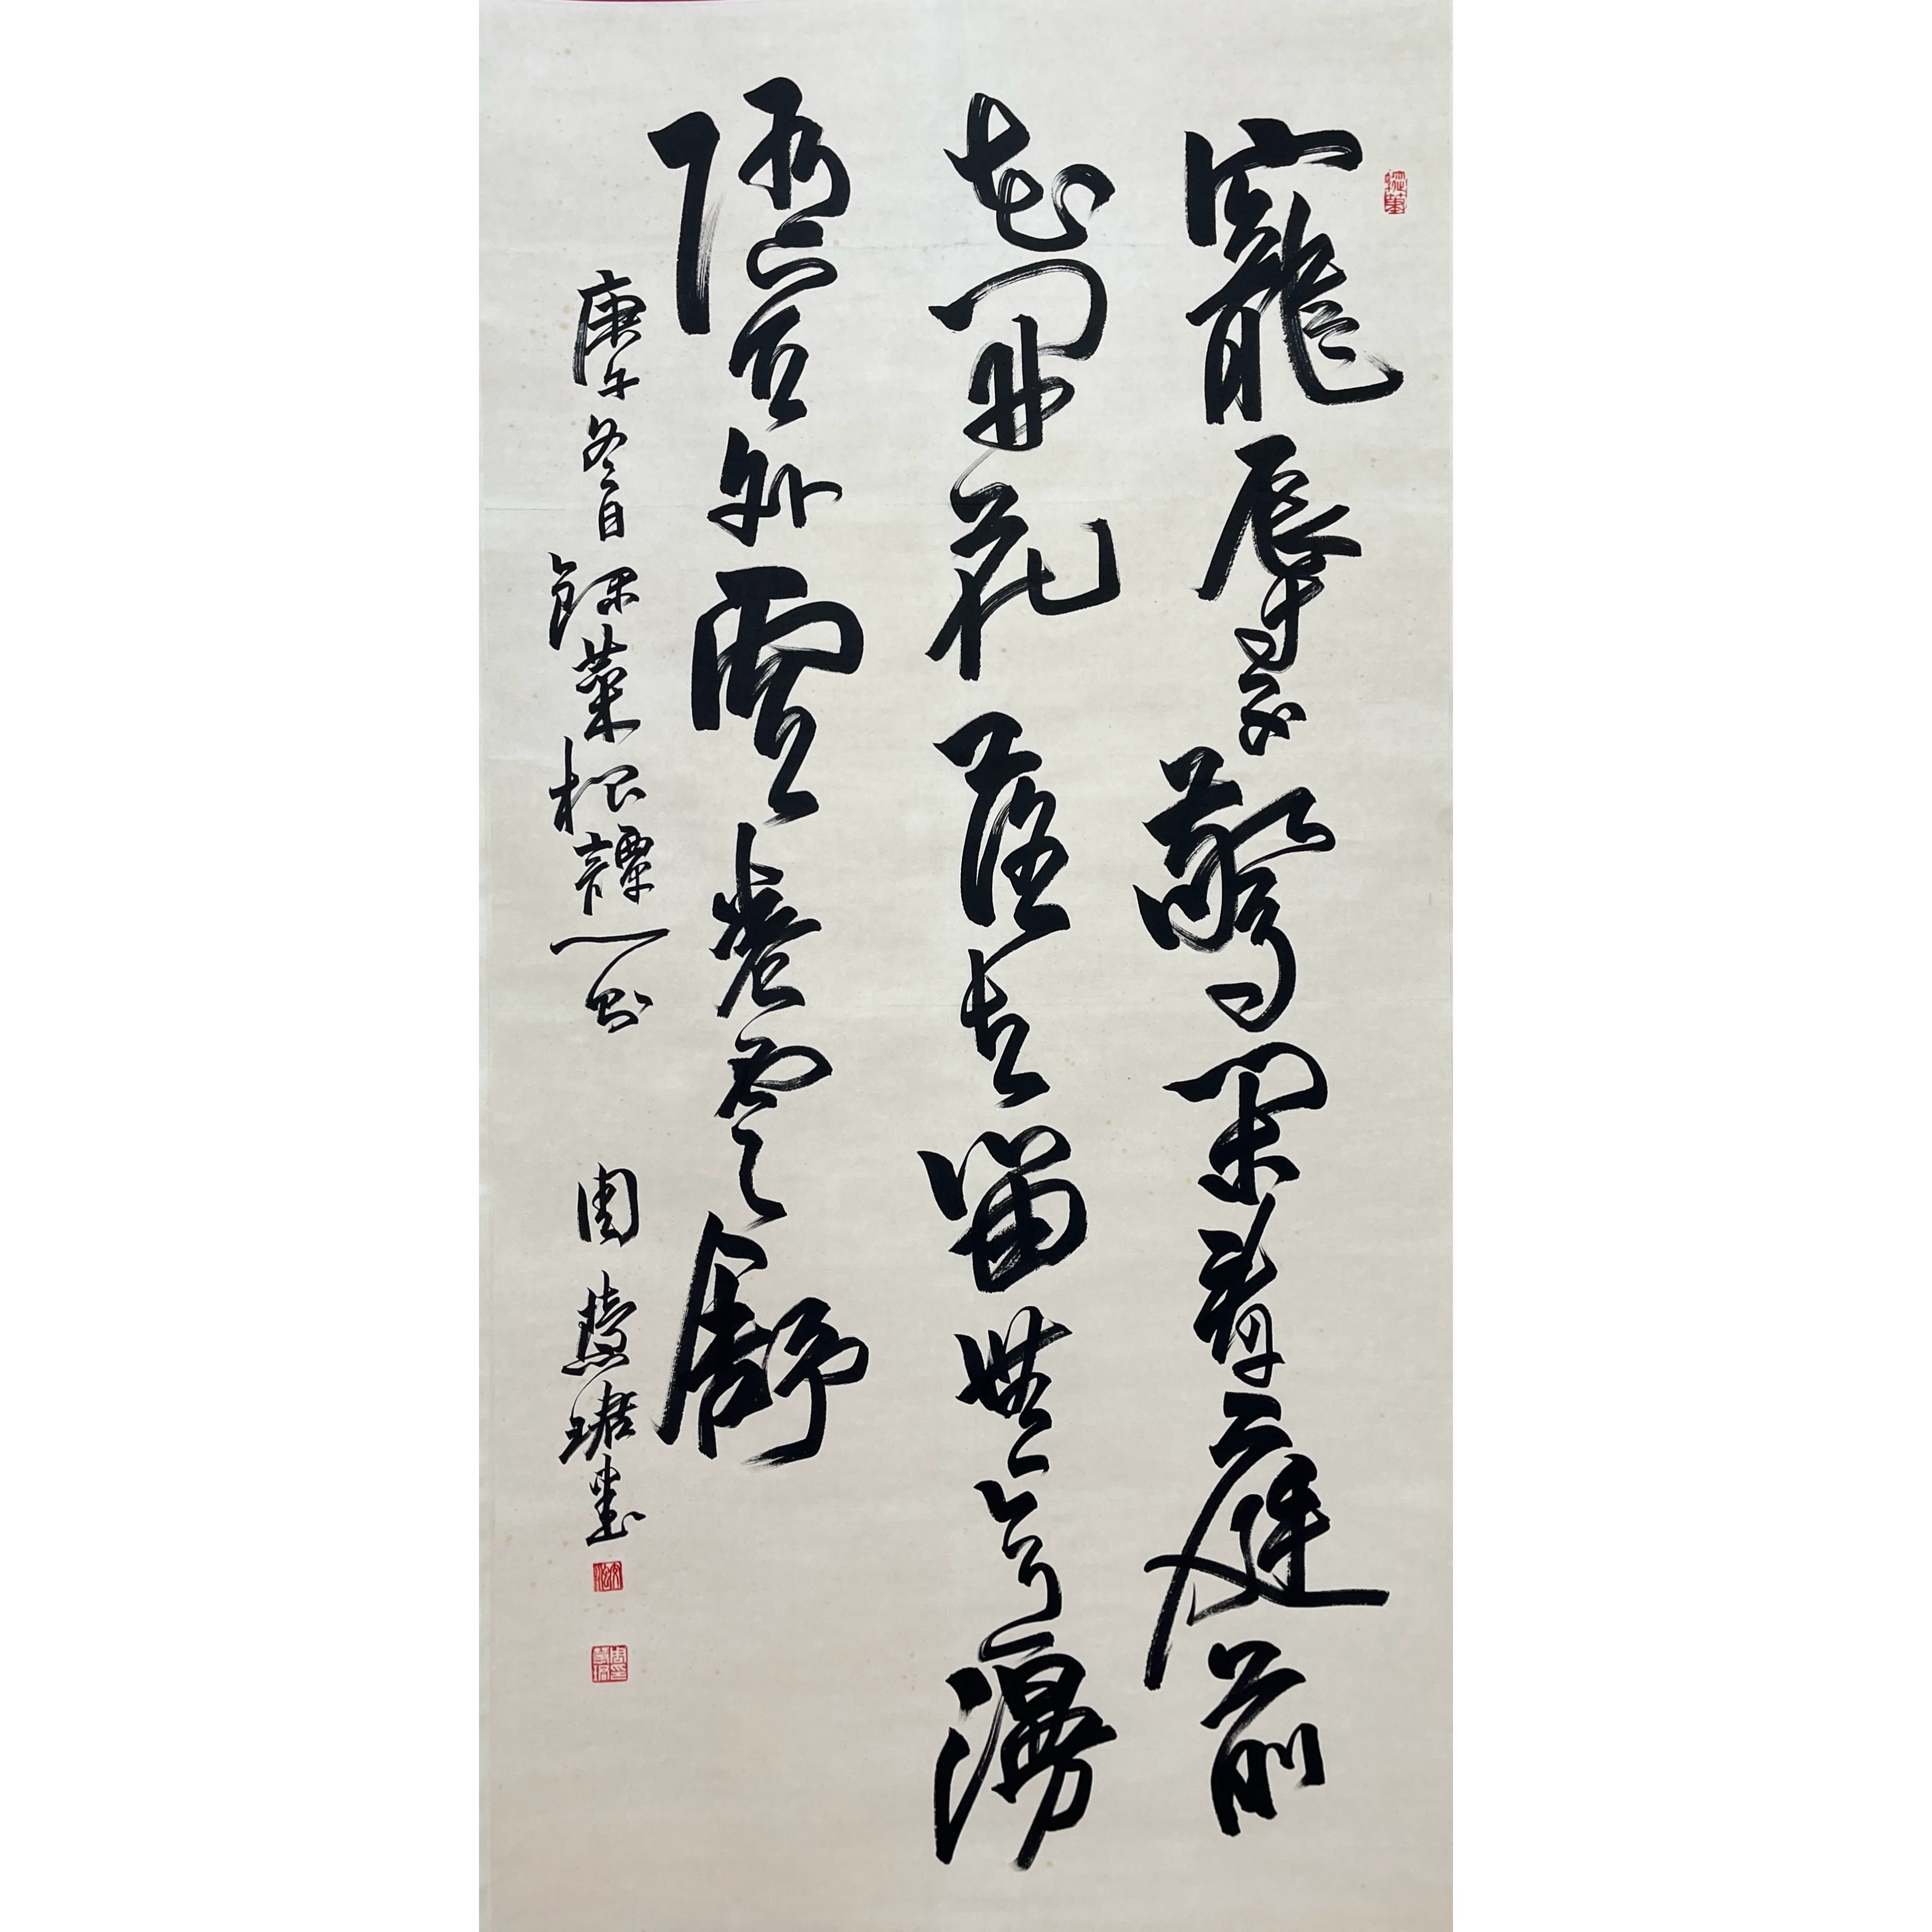 寵辱不驚閑看庭前
花開花落去留無意漫
隨天外雲卷雲舒
庚午冬日錄菜根譚一則 周慧珺書